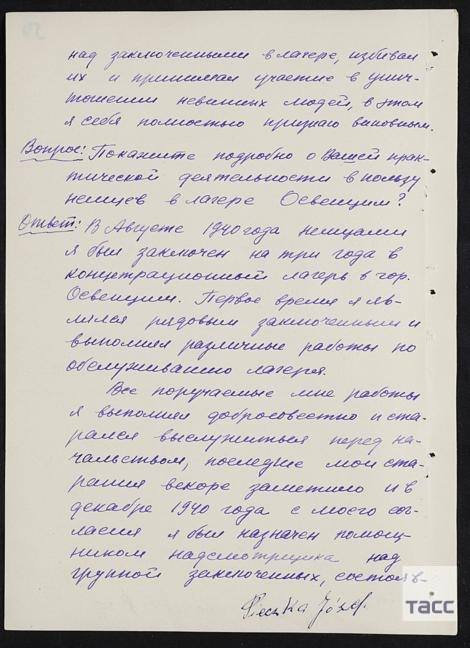 над заключенными в лагере, избивал
их и принимал участие в унич-
тожении невинных людей, в этом
я себя полностью признаю виновным.
Вопрос: Покажите подробно о Вашей прак-
тической деятельности в пользу
немцев в лагере Освенцим?
Ответ: В Августе 1940 года немцами
я был заключен на три года в
концетрационной лагерь в гор.
Освенцим. Первое время я яв-
лялся рядовым заключенным и
выполнял различные работы по
обслуживанию лагеря.
Все поручаемые мне работы
я выполнял добросовестно и ста-
рался выслужиться перед на-
чальством, последние мои ста-
рания вскоре заметило и в
декабре 1940 года с моего сог-
ласия я был назначен помощ-
ником надсмотрщика над
группой заключенных, состояв-
Józef
ТАСС